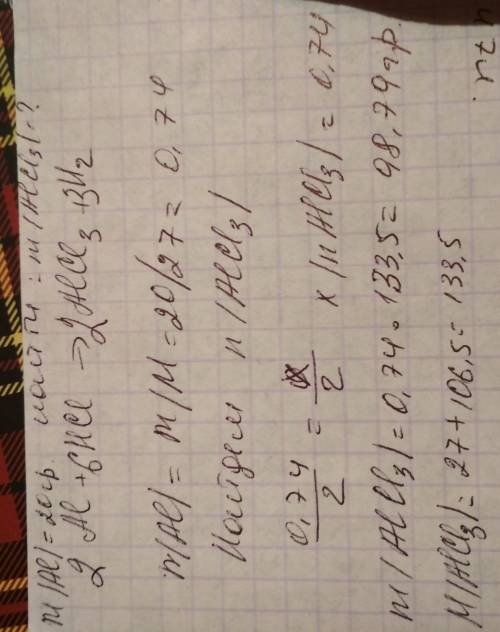 m(Al)=20гр. найти: m(AlCl₃)-?
2Al+6HCl→2AlCl₃+3H₂
m(Al)= m/M=20/27=0,74
Найдем n(AlCl₃)
0,74/2 = x/2 x(nAlCl₃)=0,74
m(AlCl₃)=0,74·133,5=98,79гр.
M(AlCl₃)=27+106,5=133,5